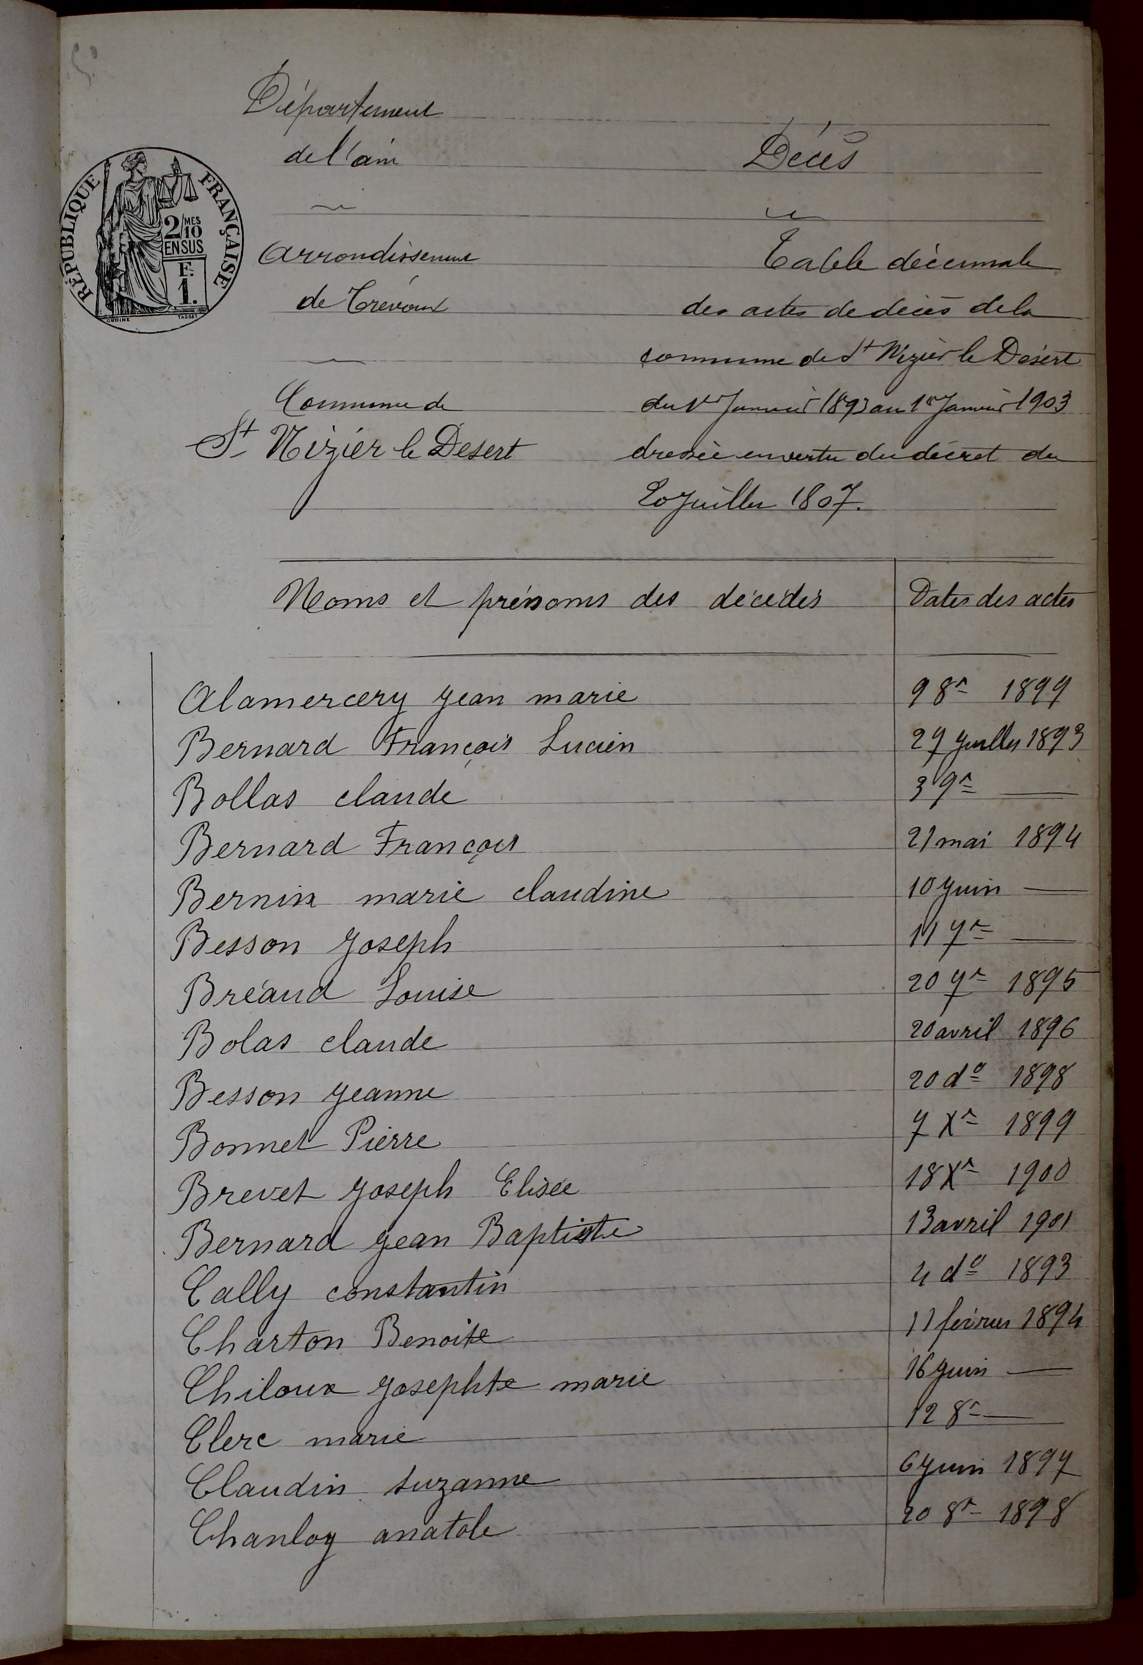 Département
de l'ain
Décès
RÉPUBLIQUE FRANÇAISE
2/10 MES
EN SUS
F.
1.
arrondissement
de Trévoux
Table décennale
des actes de décès de la
commune de St Nizier le Désert
Commune de
du 1er Janvier 1893 au 1er Janvier 1903
St Nizier le Desert
dressée en vertu du décret du
20 juillet 1807.
Noms et prénoms des décédés Dates des actes
Alamercery jean marie 9 8re 1899
Bernard François Lucien 29 juillet 1893
Bollas claude 3 9re —
Bernard François 21 mai 1894
Bernin marie claudine 10 juin —
Besson joseph 11 7re —
Bréaud Louise 20 7re 1895
Bolas claude 20 avril 1896
Besson jeanne 20 do 1898
Bonnet Pierre 7 Xre 1899
Brevet joseph Elisée 18 Xre 1900
Bernard jean Baptiste 13 avril 1901
Cally constantin 4 do 1893
Charton Benoite 11 février 1894
Chiloux josephte marie 16 juin —
Clerc marie 12 8re —
Claudin suzanne 6 juin 1897
Chanloy anatole 20 8re 1898